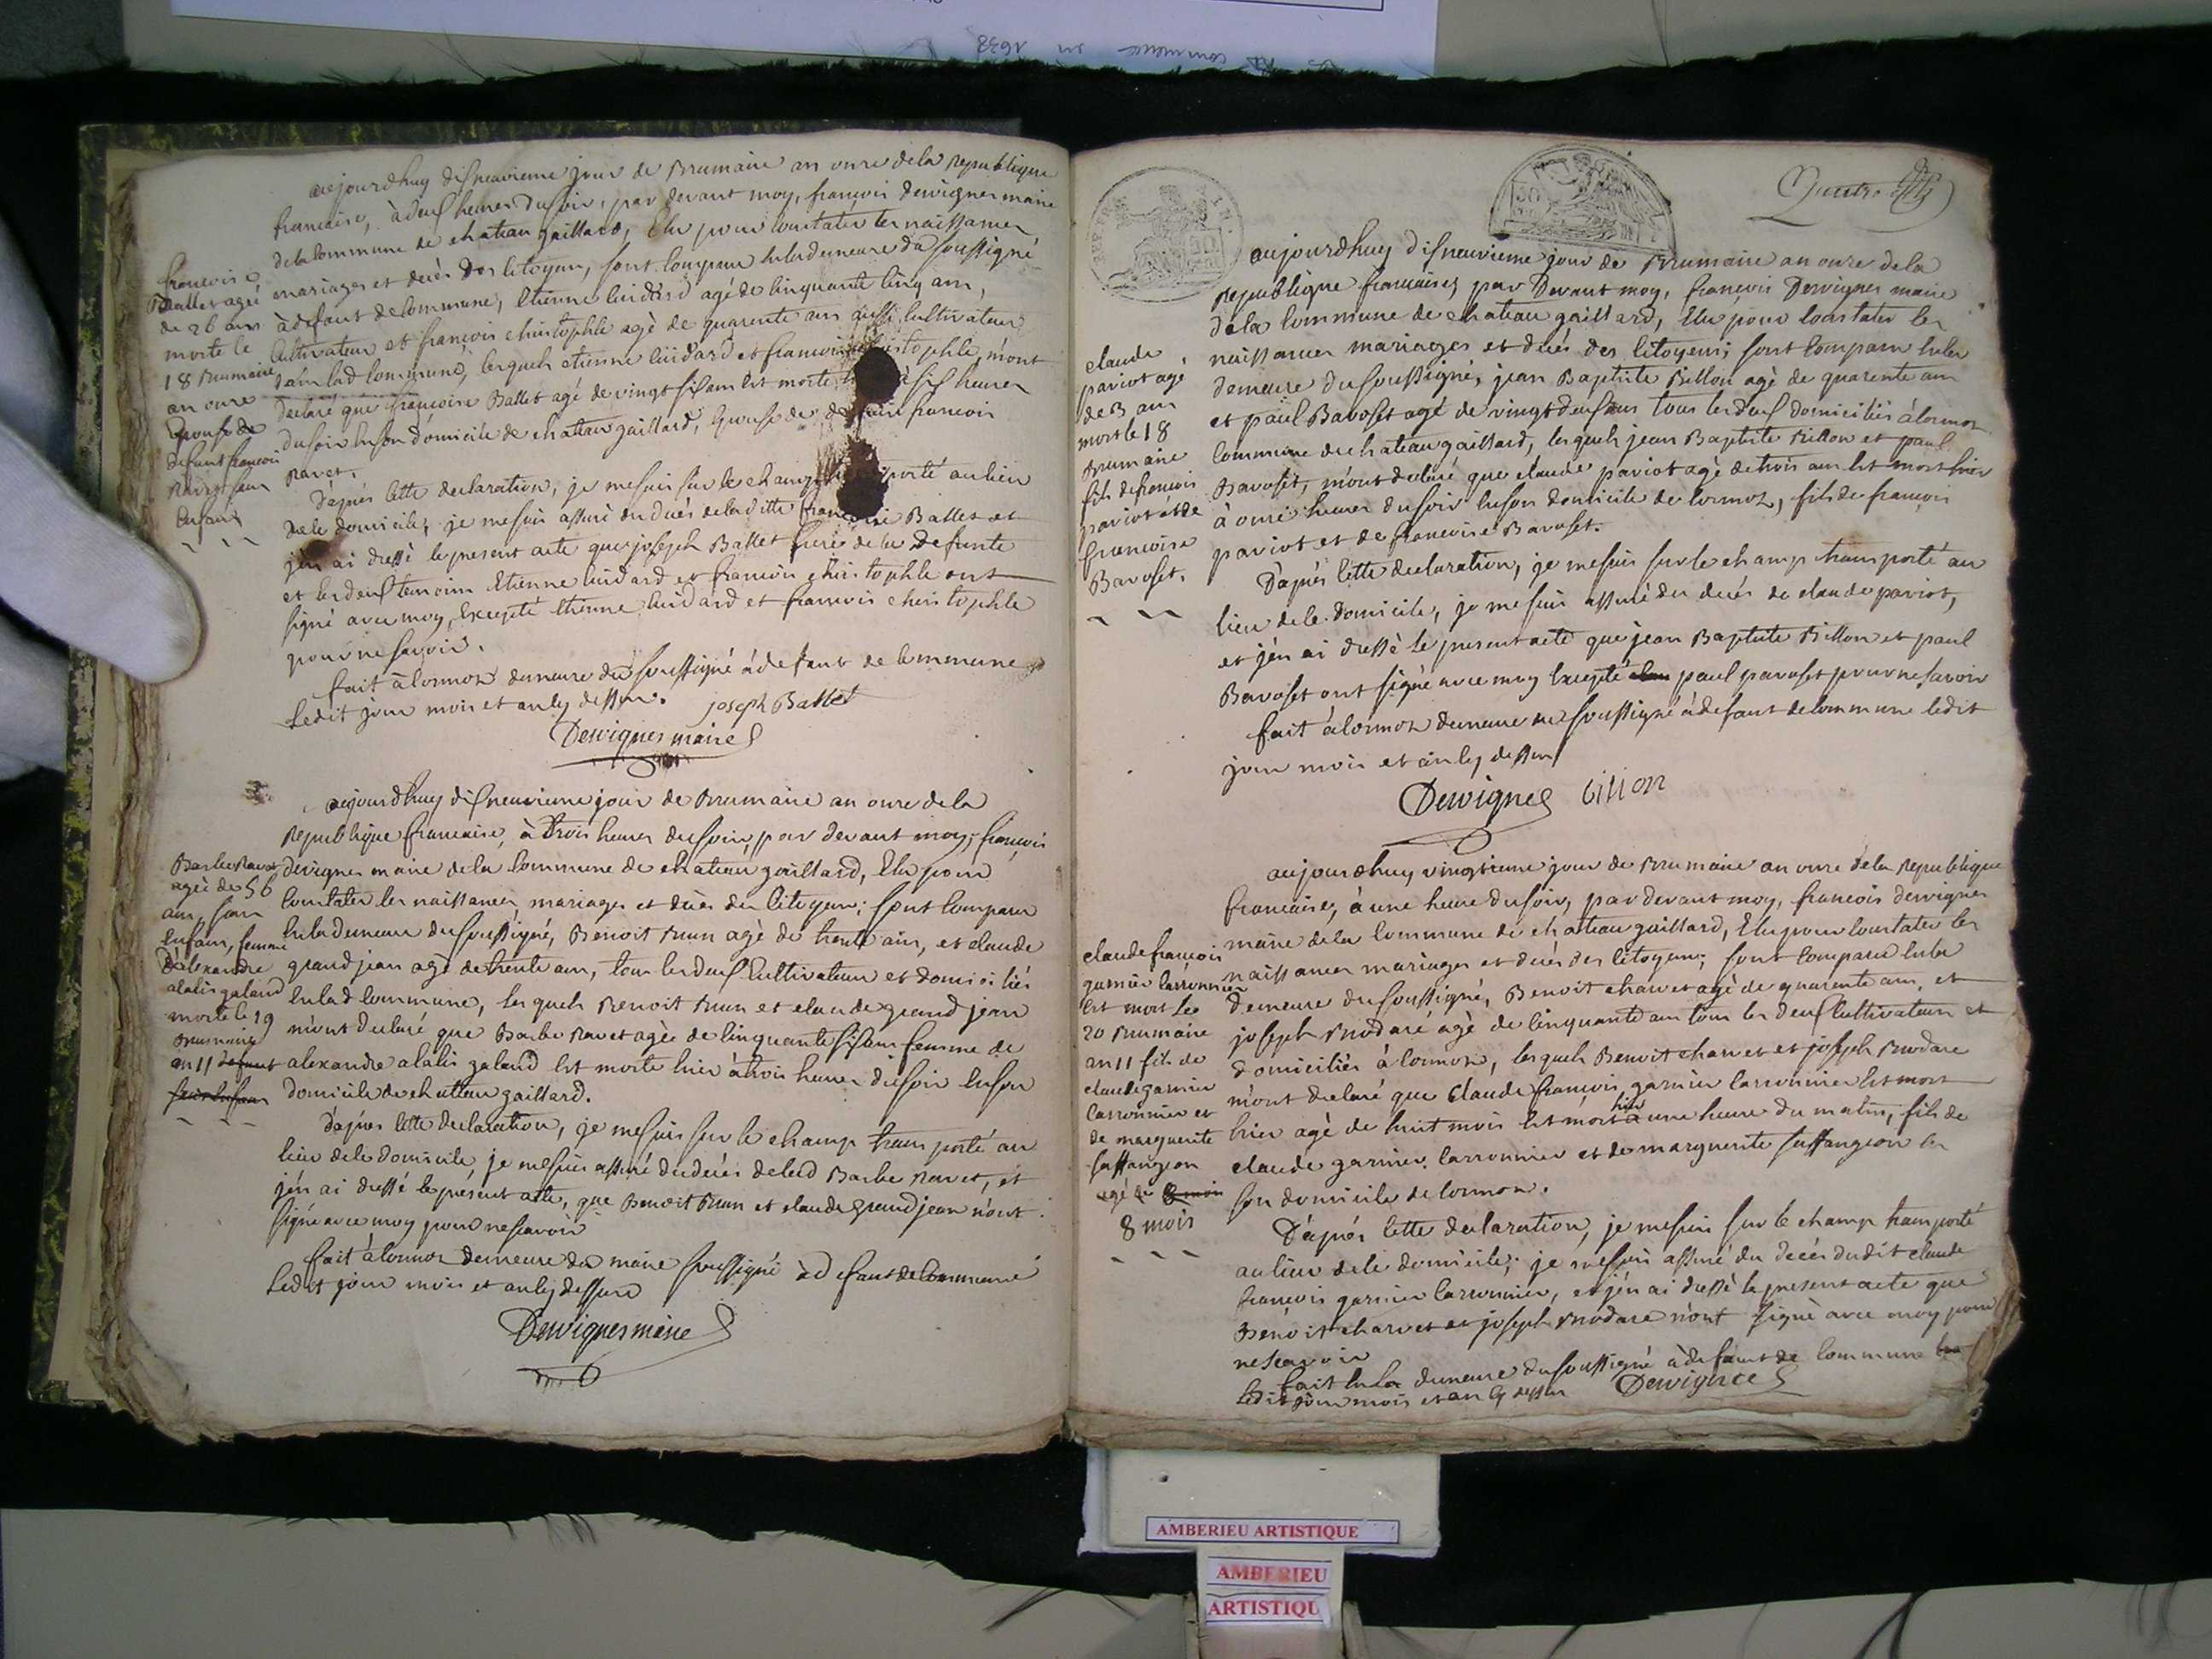 commence en 1638
aujourdhuy disneuvieme jour de Brumaire an onze de la Republique
francaise, à deux heures du soir, par devant moy, francois Dervignes maire
de la Commune de chateau gaillard, Elu pour Constater les naissances
mariages et decés des Citoyens, sont comparu en la demeure du soussigné
à defaut de Commune, Etienne Cuidard agé de Cinquante Cinq ans,
Cultivateur et francois christophle agé de quarente ans aussi Cultivateur
dans lad Commune, lesquels etienne Cuidard et francois christophle, m'ont
declaré que francoise Ballet agé de vingt six ans Est morte à six heures
du soir En son domicile de chateau gaillard, Epouse de defunt francois
Ravet.
D'après Cette declaration, je me suis sur le champ transporté au lieu
de le domicile, je me suis assuré du decés de laditte francoise Ballet et
j'en ai dressé le present acte que joseph Ballet frere de la defunte
et les deux temoins Etienne Cuidard et francois christophle ont
signé avec moy, Excepté Etienne Cuidard et francois christophle
pour ne savoir.
fait à Cormoz demeure du soussigné à defaut de Commune
Ledit jour mois et an Cy dessus. joseph Ballet
Dervignes maire
francoise
Ballet agée
de 26 ans
morte le
18 Brumaire
an onze
Epouse de
defunt francois
Ravet sans
Enfans
aujourdhuy disneuvieme jour de Brumaire an onze de la
Republique francaise, à trois heures du soir, par devant moy, francois
Dervignes maire de la Commune de chateau gaillard, Elu pour
Constater les naissances, mariages et decés des Citoyens; sont Comparu
En la demeure du soussigné, Benoit Brun agé de trente ans, et claude
grand jean agé de trente ans, tous les deux Cultivateurs et domiciliés
En lad Commune, lesquels Benoit Brun et claude grand jean
m'ont declaré que Barbe Ravet agée de Cinquante six ans femme de
alexandre alalis galand Est morte hier à trois heures du soir En son
domicile de chateau gaillard.
D'après Cette declaration, je me suis sur le champ transporté au
lieu de le domicile, je me suis assuré du decés de lad Barbe Ravet, et
j'en ai dressé le présent acte, que Benoit Brun et claude grand jean n'ont
signé avec moy pour ne savoir
fait à Cormoz demeure du maire soussigné à defaut de Commune
Ledit jour mois et an Cy dessus
Dervignes maire
Barbe Ravet
agée de 56
ans, sans
Enfans, femme
d'alexandre
alalis galand
morte le 19
Brumaire
an 11 defunt
sans Enfans
Quatre
aujourdhuy disneuvieme jour de Brumaire an onze de la
Republique francaise, par Devant moy, francois Dervignes maire
de la Commune de chateau gaillard, Elu pour Constater les
naissances mariages et decés des Citoyens; sont Comparu En la
demeure du soussigné, jean Baptiste Billon agé de quarente ans
et paul Bavoset agé de vingt deux ans tous les deux domiciliés à Cormoz
Commune de chateau gaillard, lesquels jean Baptiste Billon et paul
Bavoset, m'ont declaré que claude pariot agé de trois ans Est mort hier
à onze heures du soir En son domicile de Cormoz, fils de francois
pariot et de francoise Bavoset.
D'après Cette declaration, je me suis sur le champ transporté au
lieu de le Domicile, je me suis assuré du decés de claude pariot,
et j'en ai dressé le present acte que jean Baptiste Billon et paul
Bavoset ont signé avec moy Excepté paul pavoset pour ne savoir
fait à Cormoz demeure du soussigné à defaut de Commune Ledit
jour mois et an Cy dessus
Dervignes billon
claude
pariot agé
de 3 ans
mort le 18
Brumaire
fils de francois
pariot et de
francoise
Bavoset.
aujourdhuy vingtieme jour de Brumaire an onze de la Republique
francaise, à une heure du soir, par devant moy, francois dervignes
maire de la Commune de chateau gaillard, Elu pour Constater les
naissances mariages et decés des Citoyens; sont Comparu En la
demeure du soussigné, Benoit charvet agé de quarente ans, et
joseph Brodare agé de Cinquante ans tous les deux Cultivateurs et
domiciliés à Cormoz, lesquels Benoit charvet et joseph Brodare
m'ont declaré que Claude francois garnier Carronnier Est mort
hier agé de huit mois Est mort hier à une heure du matin, fils de
claude garnier Carronnier et de marguerite saffangeon En
son domicile de Cormoz.
D'après Cette declaration, je me suis sur le champ transporté
au lieu de le domicile; je me suis assuré du decés dudit claude
francois garnier Carronnier, et j'en ai dressé le present acte que
Benoit charvet et joseph Brodare n'ont signé avec moy pour
ne scavoir
fait En la demeure du soussigné à defaut de Commune
Ledit jour mois et an Cy dessus Dervignes
claude francois
garnier Carronnier
Est mort Le
20 Brumaire
an 11 fils de
claude garnier
Carronnier et
de marguerite
saffangeon
agé de 8 mois
8 mois
AMBERIEU ARTISTIQUE
AMBERIEU
ARTISTIQU